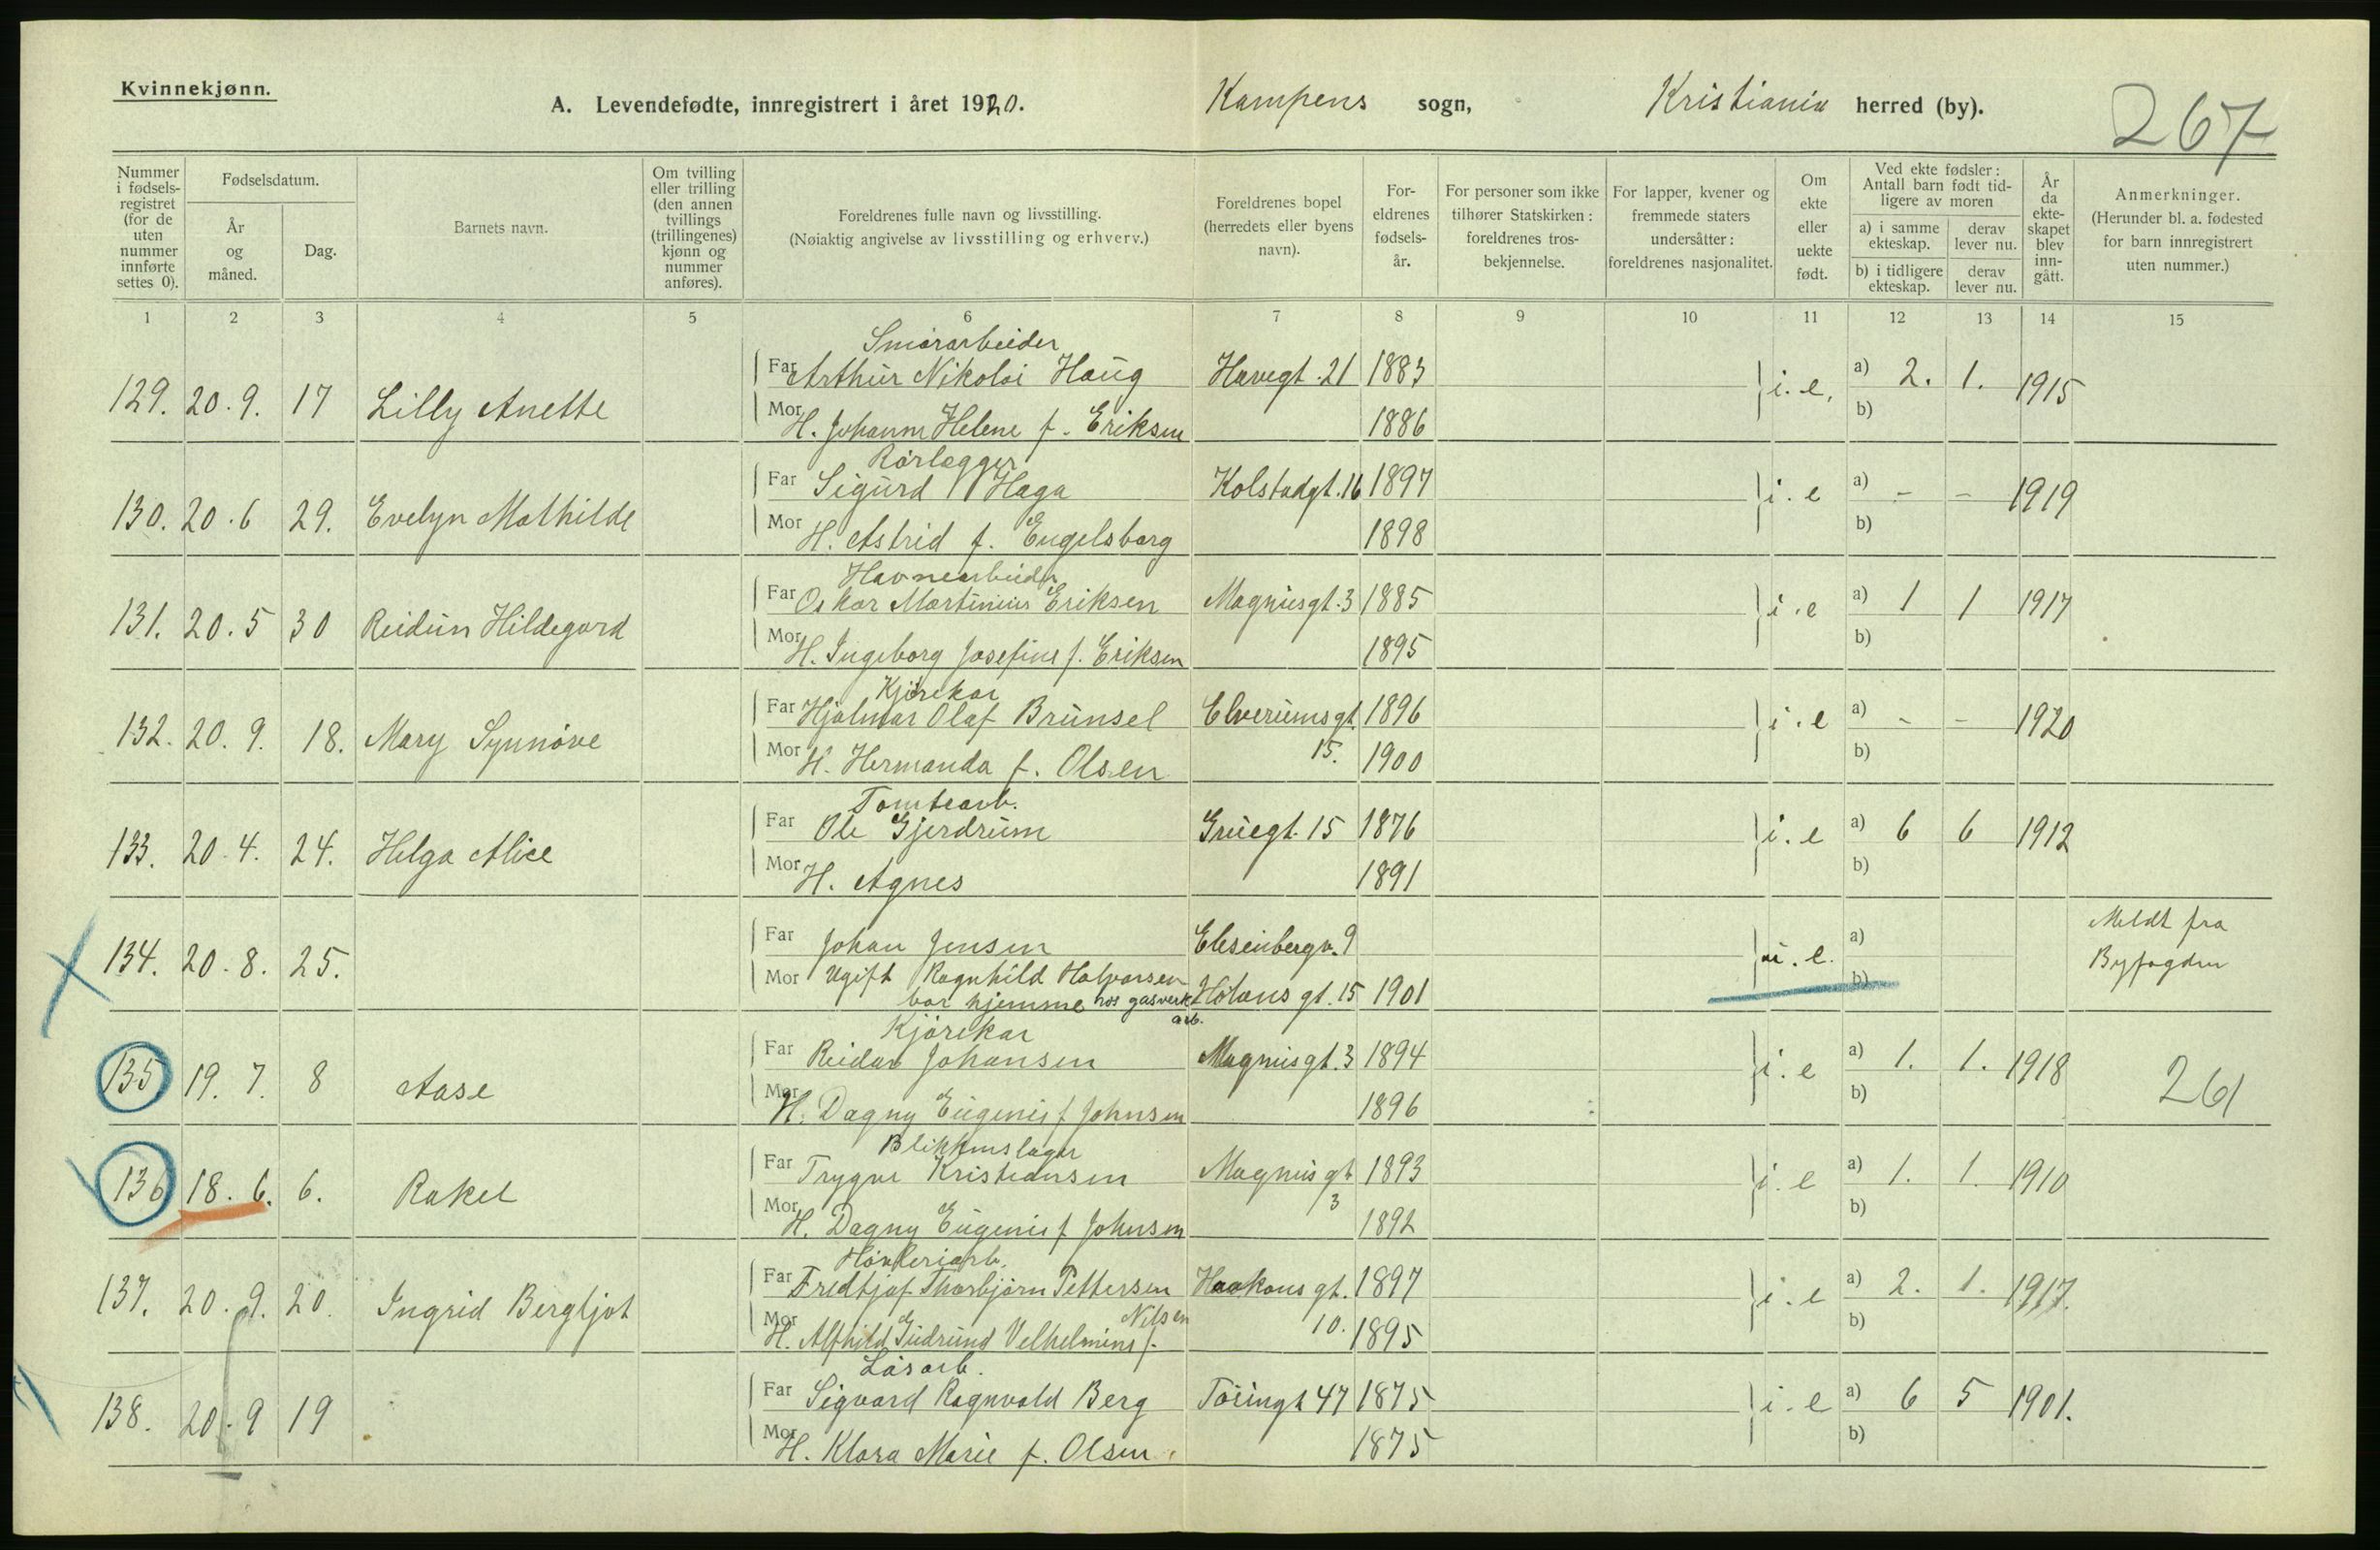 Kvinnekjønn.
A. Levendefødte, innregistrert i året 1920. Kampens sogn, Kristiania herred (by). 267
Nummer i fødsels-registret (for de uten nummer innførte settes 0).
Fødselsdatum.
År og måned.
Dag.
Barnets navn.
Om tvilling eller trilling (den annen tvillings (trillingenes) kjønn og nummer anføres).
Foreldrenes fulle navn og livsstilling.
(Nøiaktig angivelse av livsstilling og erhverv.)
Foreldrenes bopel (herredets eller byens navn).
For-eldrenes fødsels-år.
For personer som ikke tilhører Statskirken: foreldrenes tros-bekjennelse.
For lapper, kvener og fremmede staters undersåtter: foreldrenes nasjonalitet.
Om ekte eller uekte født.
Ved ekte fødsler: Antall barn født tid-ligere av moren
a) i samme ekteskap.
derav lever nu.
b) i tidligere ekteskap.
derav lever nu.
År da ekte-skapet blev inn-gått.
Anmerkninger.
(Herunder bl. a. fødested for barn innregistrert uten nummer.)
1 2 3 4 5 6 7 8 9 10 11 12 13 14 15
Smørarbeider
129. 20. 9. 17 Lilly Anette Far Arthur Nikolai Haug Havegt. 21 1883 i. e, a) 2. 1. 1915
Mor H. Johanne Helene f. Eriksen 1886 b)
Rørlægger
130. 20. 6 29. Evelyn Mathilde Far Sigurd Haga Kolstadgt. 16 1897 i. e a) - - 1919
Mor H. Astrid f. Engelsborg 1898 b)
Havnearbeider
131. 20. 5 30 Reidun Hildegard Far Oskar Martinius Eriksen Magnusgt. 3 1885 i. e a) 1 1 1917
Mor H. Ingeborg Josefine f. Eriksen 1895 b)
Kjørekar
132. 20. 9. 18. Mary Synnøve Far Hjalmar Olaf Brunsel Elverumsgt. 1896 i. e a) - - 1920
Mor H. Hermanda f. Olsen 15. 1900 b)
Tomtearb.
133. 20. 4. 24. Helga Alice Far Ole Gjerdrum Gruegt. 15 1876 i. e a) 6 6 1912
Mor H. Agnes 1891 b)
134. 20. 8. 25. Far Johan Jensen Elisenbergv. 9 u. e. a) Meldt fra Byfogden
Mor Ugift Ragnhild Halvorsen Hølans gt. 15 1901 b)
bor hjemme hos gasverks arb.
Kjørekar
135 19. 7. 8 Aase Far Reidar Johansen Magnusgt. 3 1894 i. e a) 1. 1. 1918 261
Mor H. Dagny Eugenie f Johnsen 1896 b)
Blikkenslager
136 18. 6. 6. Rakel Far Trygve Kristiansen Magnus gt 1893 i. e a) 1. 1. 1910
Mor H. Dagny Eugenie f Johnsen 3 1892 b)
Høvleriarb.
137. 20. 9. 20. Ingrid Bergljot Far Fredtjof Thorbjørn Pettersen Haakons gt. 1897 i. e a) 2. 1. 1917.
Mor H. Alfhild Gudrund Velhelmine f. Nilsen 10. 1895 b)
Løsarb.
138. 20. 9 19 Far Sigvard Ragnvald Berg Tøiengt 47 1875 i. e a) 6 5 1901.
Mor H. Klara Marie f. Olsen 1875 b)